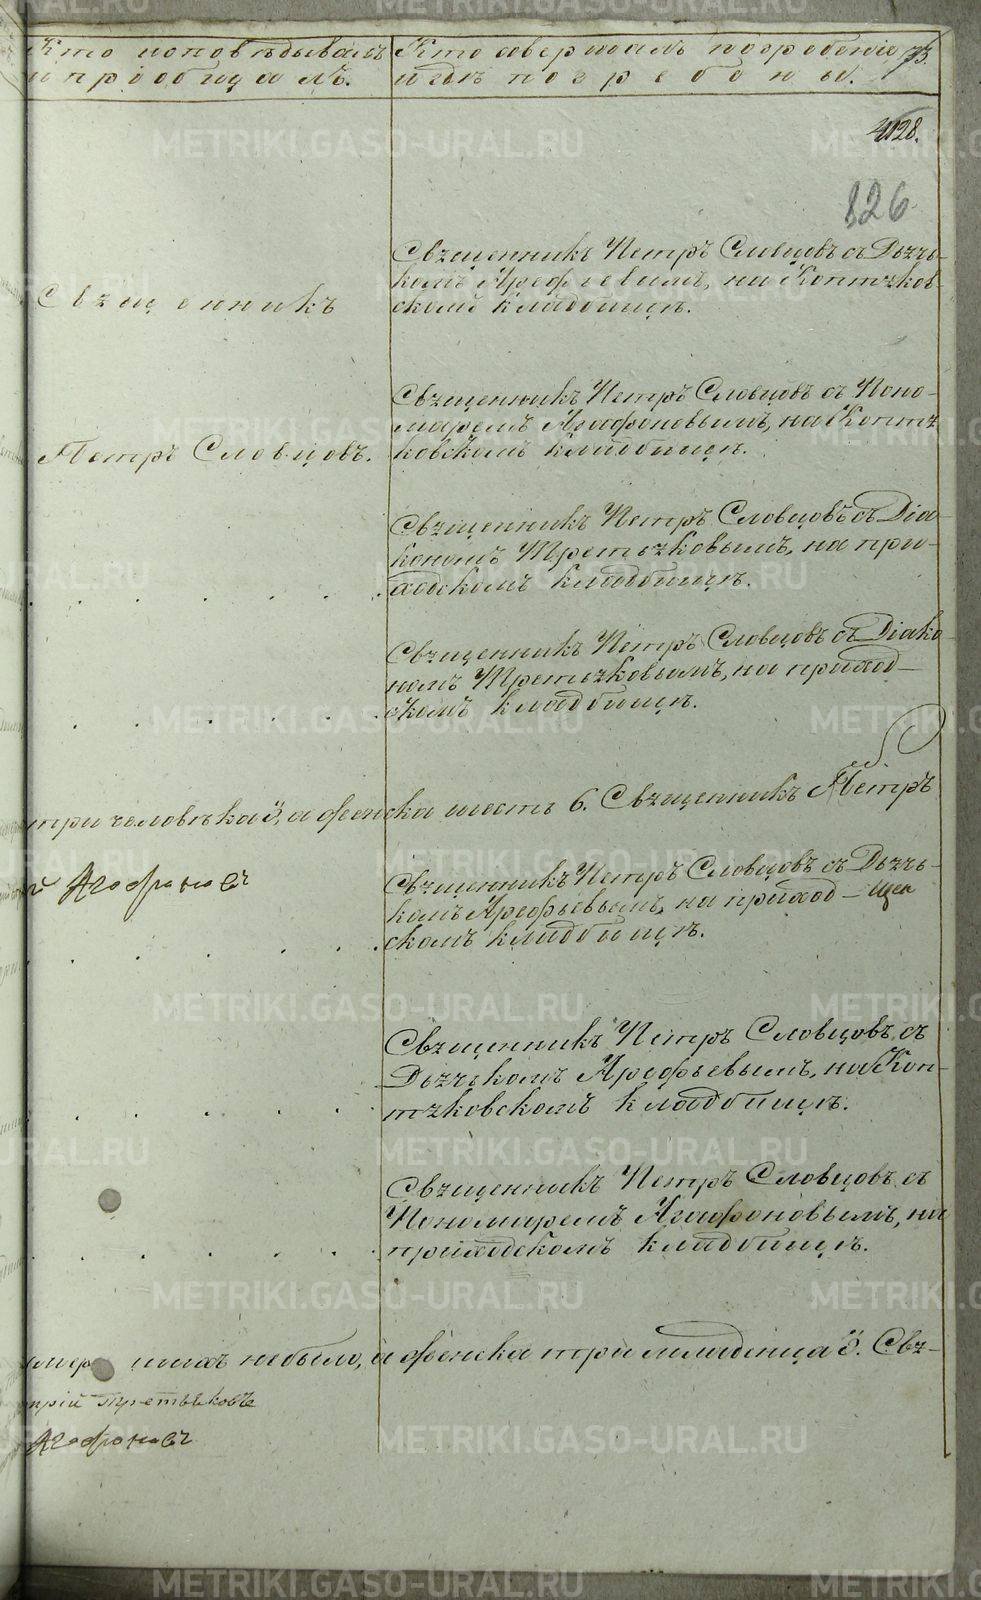 Кто исповѣдывалъ
и пріобщалъ.
Кто совершалъ погребеніе
и гдѣ погребены.
4128.
826
Священникъ
Петръ Словцовъ.
Священникъ Петръ Словцовъ съ Дьячь-
комъ Арефьевымъ, на Коптяков-
скомъ кладбищѣ.
Священникъ Петръ Словцовъ съ Поно-
маремъ Агафоновымъ, на Коптя
ковскомъ кладбищѣ.
Священникъ Петръ Словцовъ съ Діа-
кономъ Третьяковымъ, на при-
ходскомъ кладбищѣ.
Священникъ Петръ Словцовъ съ Діако-
номъ Третьяковымъ, на приход-
скомъ кладбищѣ.
три человѣка 3, а женска шесть 6. Священникъ Петръ
й Агафоновъ
Священникъ Петръ Словцовъ съ Дьячь-
комъ Арефьевымъ, на приход-
скомъ кладбищѣ.
Священникъ Петръ Словцовъ съ
Дьячькомъ Арефьевымъ, на Коп-
тяковскомъ кладбищѣ.
Священникъ Петръ Словцовъ съ
Пономаремъ Агафоновымъ, на
приходскомъ кладбищѣ.
небыло, а женска три младенца 3. Свя-
трій Третьяковъ
Агафоновъ
METRIKI.GASO-URAL.RU